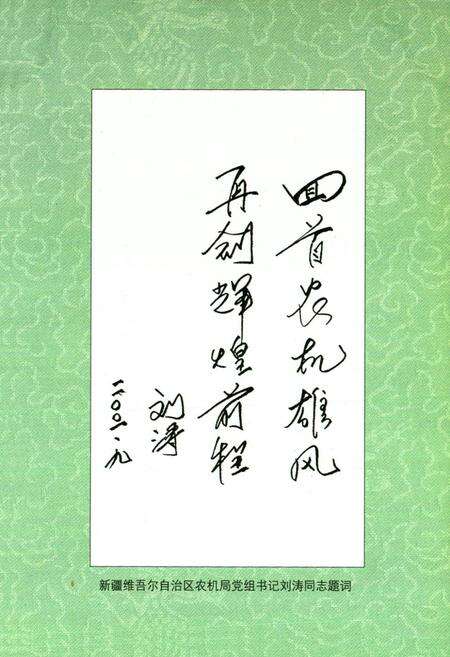 回首农机雄风
再创辉煌前程
刘涛
二〇〇一.九
新疆维吾尔自治区农机局党组书记刘涛同志题词